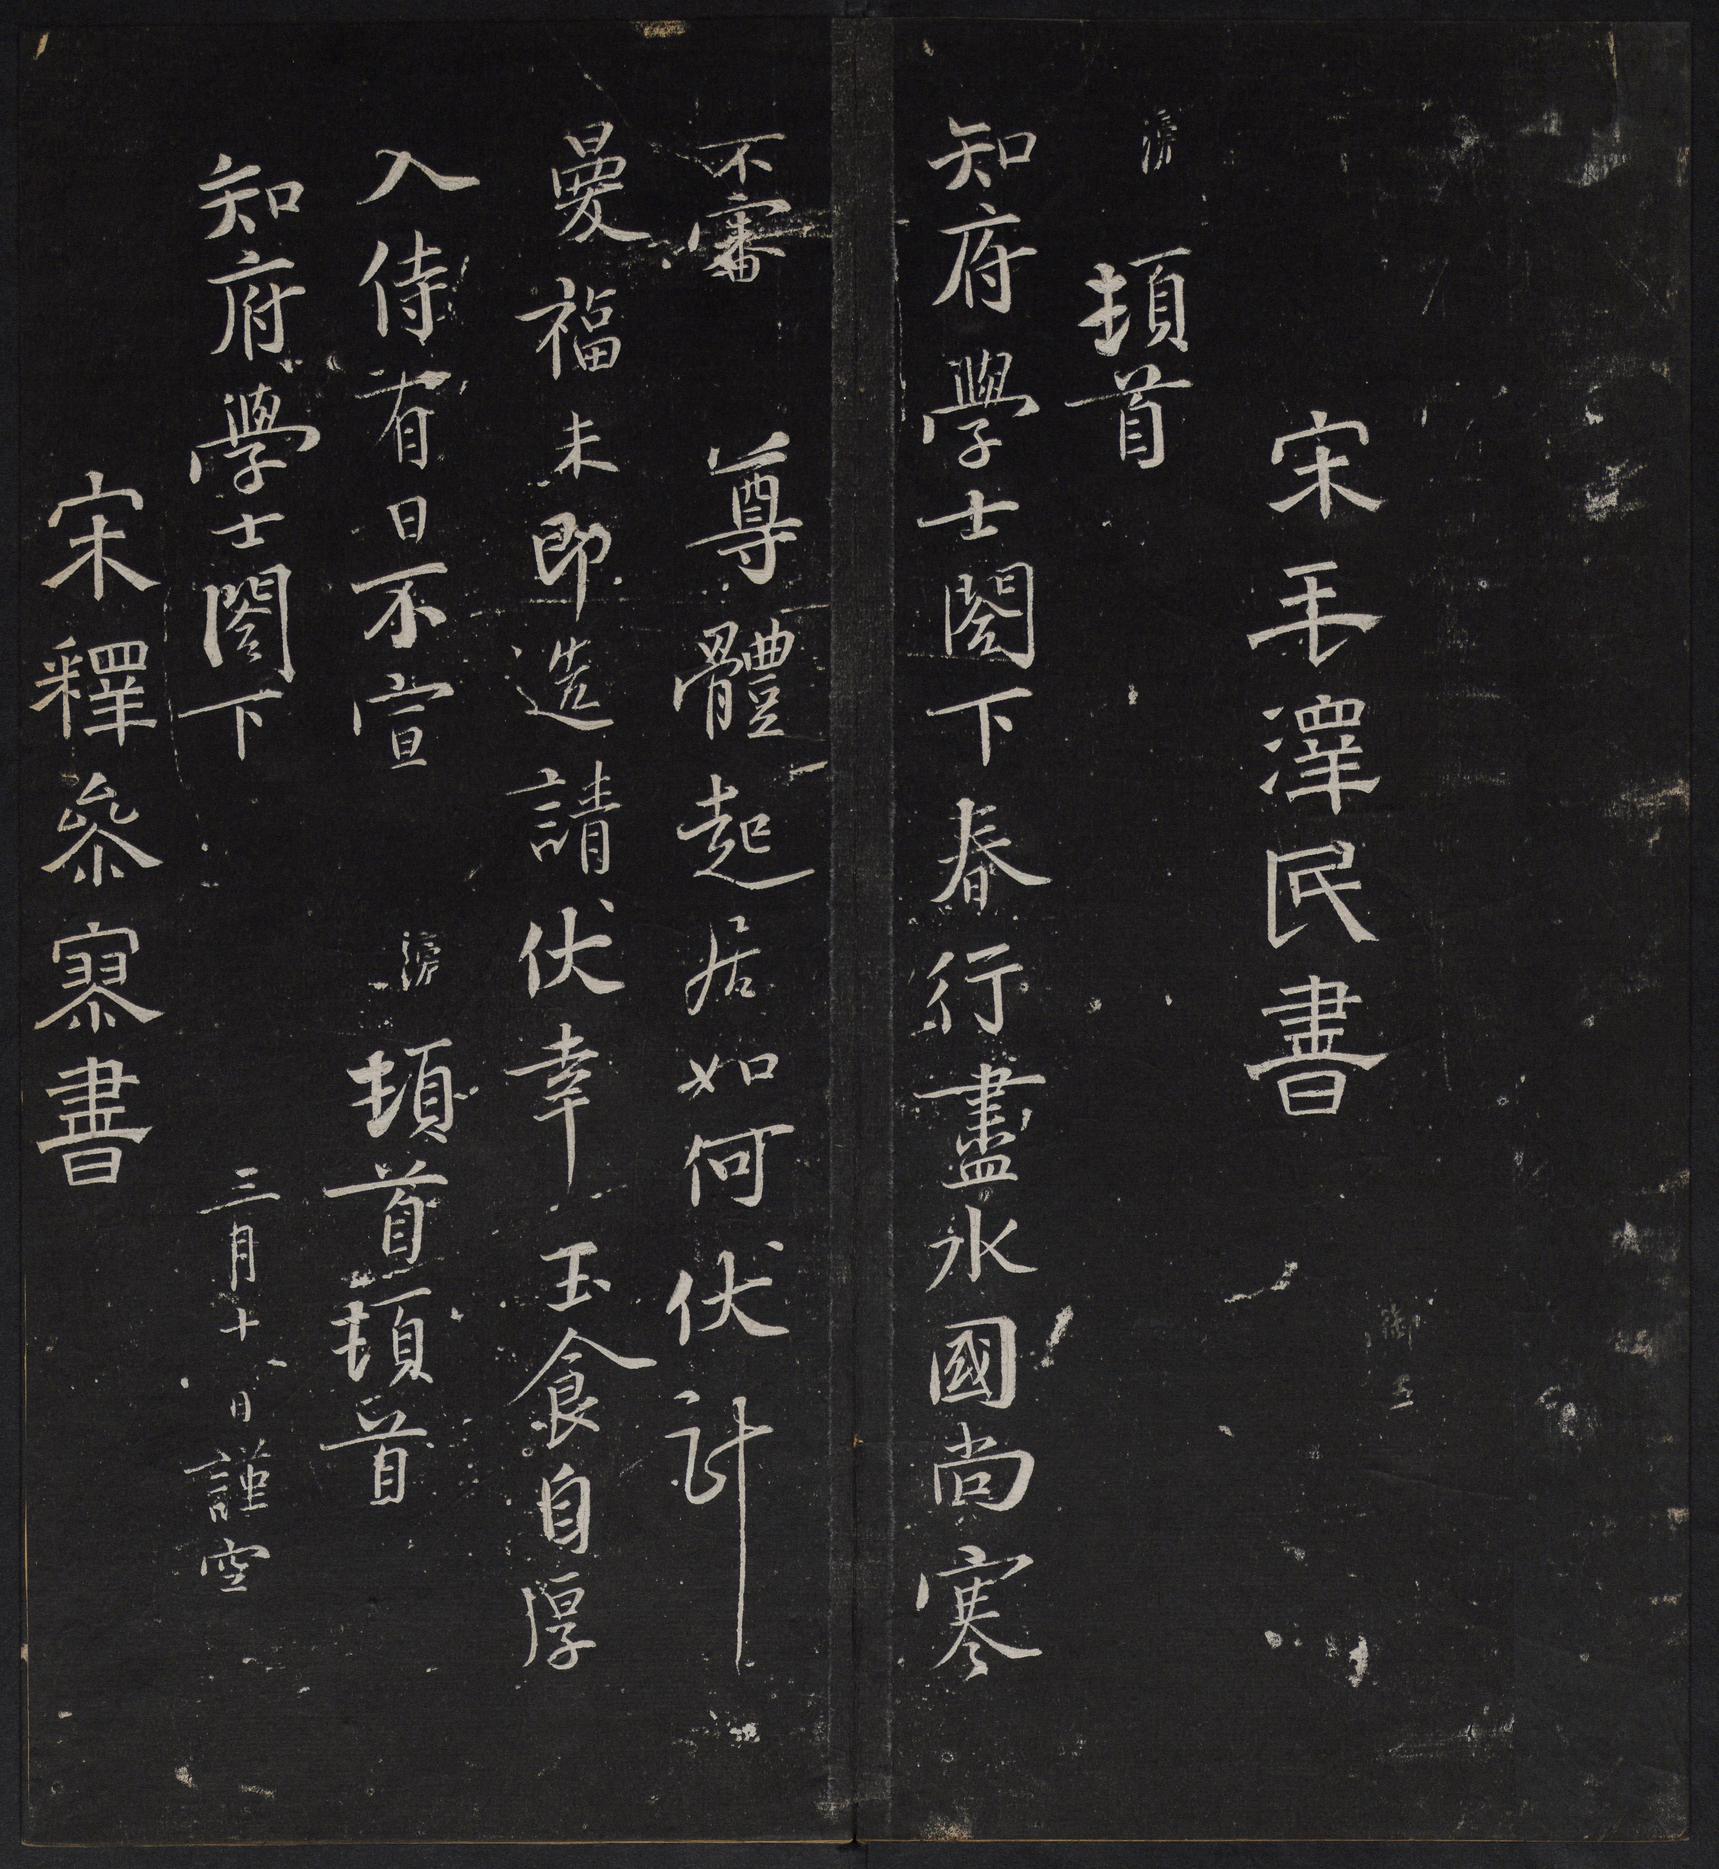 宋毛澤民書
滂
頓首
知府學士閤下春行盡氷國尚寒
不審 尊體起居如何伏計
曼福未即造請伏幸玉食自厚
入侍有日不宣 滂 頓首頓首
知府學士閤下 三月十八日謹空
宋釋參寥書